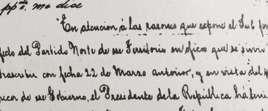 ppto. me dice
"En atencion á las razones que expone el Sub. pre
fecto del Partido Norte de ese Territorio en oficio que se sirvió
trascribir con fecha 22 de Marzo anterior, y en vista del
de ese Gobierno, el Presidente de la República ha